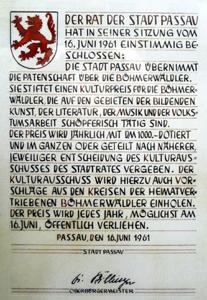 DER RAT DER STADT PASSAU
HAT IN SEINER SITZUNG VOM
16. JUNI 1961 EINSTIMMIG BE-
SCHLOSSEN:
DIE STADT PASSAU ÜBERNIMMT
DIE PATENSCHAFT ÜBER DIE BÖHMERWÄLDLER.
SIE STIFTET EINEN KULTURPREIS FÜR DIE BÖHMER-
WÄLDLER, DIE AUF DEN GEBIETEN DER BILDENDEN
KUNST, DER LITERATUR, DER MUSIK UND DER VOLKS-
TUMSARBEIT SCHÖPFERISCH TÄTIG SIND.
DER PREIS WIRD JÄHRLICH MIT DM 1000.- DOTIERT
UND IM GANZEN ODER GETEILT NACH NÄHERER,
JEWEILIGER ENTSCHEIDUNG DES KULTURAUS-
SCHUSSES DES STADTRATES VERGEBEN. DER
KULTURAUSSCHUSS WIRD HIERZU AUCH VOR-
SCHLÄGE AUS DEN KREISEN DER HEIMATVER-
TRIEBENEN BÖHMERWÄLDLER EINHOLEN.
DER PREIS WIRD JEDES JAHR, MÖGLICHST AM
16. JUNI, ÖFFENTLICH VERLIEHEN.
PASSAU, DEN 16. JUNI 1961
STADT PASSAU
OBERBÜRGERMEISTER